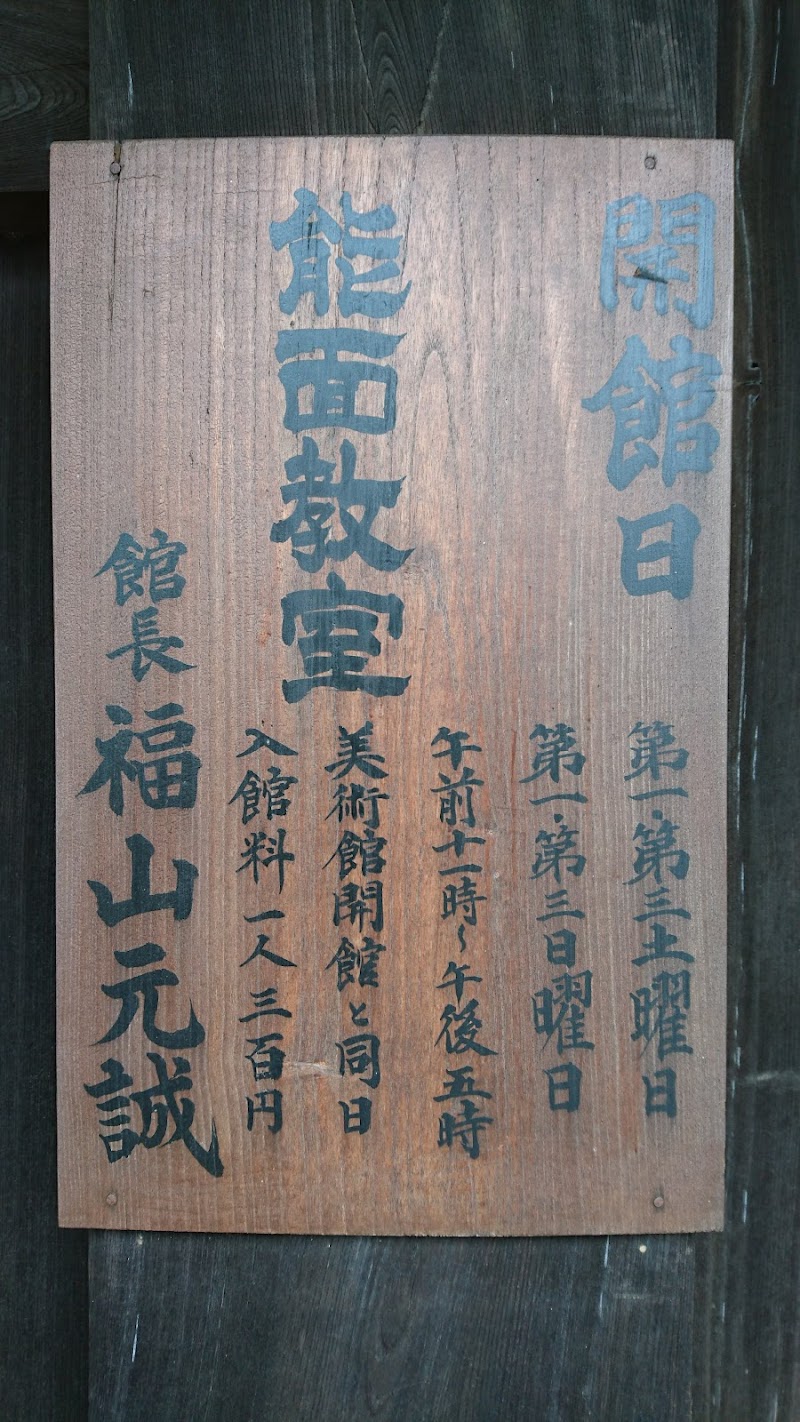 開館日
第一・第三土曜日
第一・第三日曜日
午前十一時～午後五時
能面教室
美術館開館と同日
入館料一人三百円
館長 福山元誠